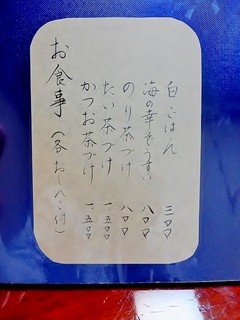 白ごはん 三〇〇
海の幸ぞうすい 八〇〇
のり茶づけ 八〇〇
たい茶づけ 一、五〇〇
かつお茶づけ 一、五〇〇
お食事（各おしんこ付）